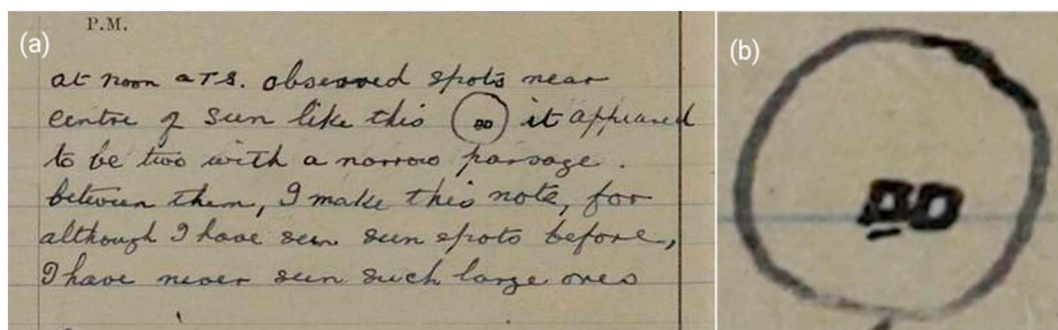 P.M.
(a)
at noon a T.S. observed spots near
centre of sun like this it appeared
to be two with a narrow passage.
between them, I make this note, for
although I have seen sun spots before,
I have never seen such large ones
(b)